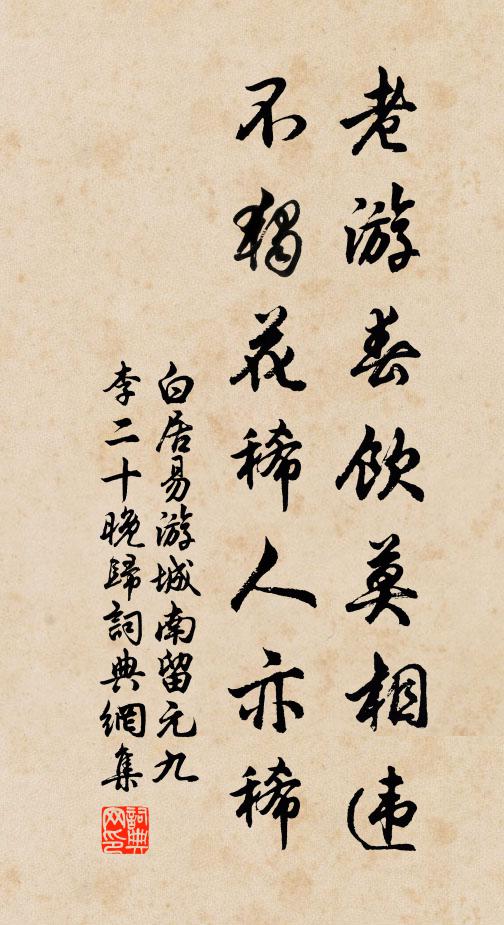 老游春飲莫相违
不獨花稀人亦稀
白居易游城南留元九
李二十晚歸詞典網集
詞典网印